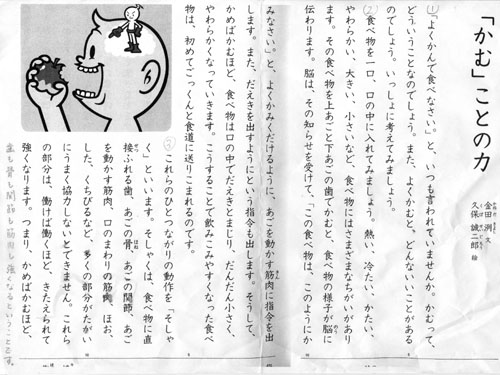 「かむ」ことの力
金田 洌 文
久保 誠二郎 絵
①「よくかんで食べなさい。」と、いつも言われていませんか。かむって、
どういうことなのでしょう。また、よくかむと、どんないいことがある
のでしょう。いっしょに考えてみましょう。
②食べ物を一口、口の中に入れてみましょう。熱い、冷たい、かたい、
やわらかい、大きい、小さいなど、食べ物にはさまざまなちがいがあり
ます。その食べ物を上あごと下あごの歯でかむと、食べ物の様子が脳に
伝わります。脳は、その知らせを受けて、「この食べ物は、このようにか
みなさい。」と、よくかみくだけるように、あごを動かす筋肉に指令を出
します。また、だえきを出すようにという指令も出します。そうして、
かめばかむほど、食べ物は口の中でだえきとまじり、だんだん小さく、
やわらかくなっていきます。こうすることで飲みこみやすくなった食べ
物は、初めてごっくんと食道に送りこまれるのです。
③これらのひとつながりの動作を「そしゃ
く」といいます。そしゃくは、食べ物に直
接ふれる歯、あごの骨、あごの関節、あご
を動かす筋肉、口のまわりの筋肉、ほお、
した、くちびるなど、多くの部分がたがい
にうまく協力しないとできません。これら
の部分は、働けば働くほど、きたえられて
強くなります。つまり、かめばかむほど、
歯も骨も関節も筋肉も強くなるということです。